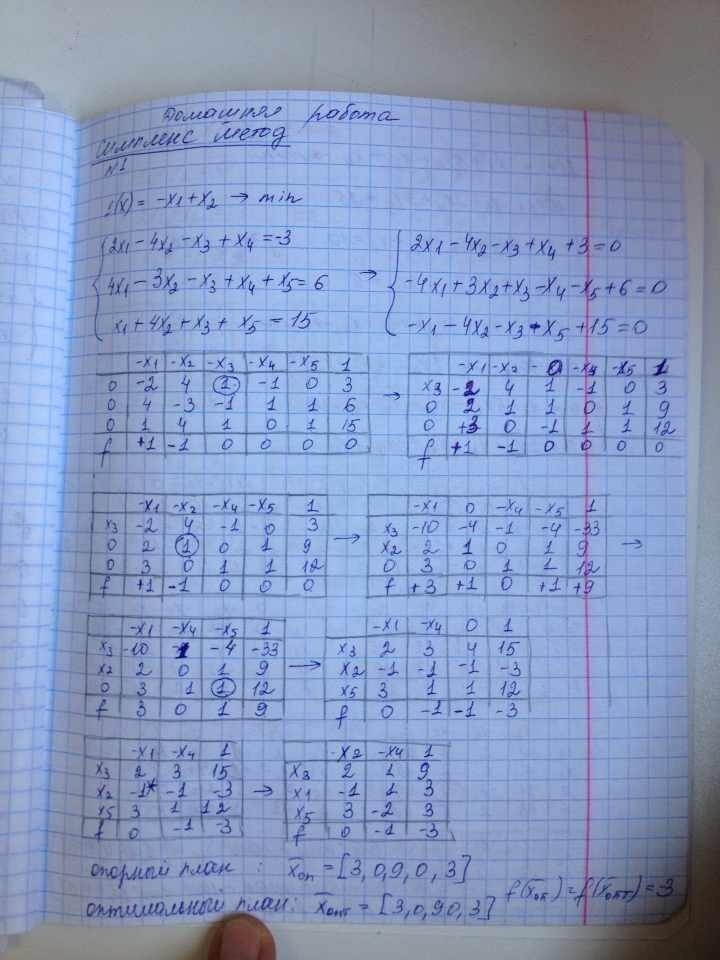 Домашняя работа
Симплекс метод
N1
f(x) = -x1 + x2 → min
2x1 - 4x2 - x3 + x4 = -3
4x1 - 3x2 - x3 + x4 + x5 = 6
x1 + 4x2 + x3 + x5 = 15
→
2x1 - 4x2 - x3 + x4 + 3 = 0
-4x1 + 3x2 + x3 - x4 - x5 + 6 = 0
-x1 - 4x2 - x3 - x5 + 15 = 0
-x1 -x2 -x3 -x4 -x5 1
0 -2 4 1 -1 0 3
0 4 -3 -1 1 1 6
0 1 4 1 0 1 15
f +1 -1 0 0 0 0
→
-x1 -x2 0 -x4 -x5 1
x3 -2 4 1 -1 0 3
0 2 1 1 0 1 9
0 +3 0 -1 1 1 12
f +1 -1 0 0 0 0
-x1 -x2 -x4 -x5 1
x3 -2 4 -1 0 3
0 2 1 0 1 9
0 3 0 1 1 12
f +1 -1 0 0 0
→
-x1 0 -x4 -x5 1
x3 -10 -4 -1 -4 -33
x2 2 1 0 1 9
0 3 0 1 1 12
f +3 +1 0 +1 +9
→
-x1 -x4 -x5 1
x3 -10 -1 -4 -33
x2 2 0 1 9
0 3 1 1 12
f 3 0 1 9
→
-x1 -x4 0 1
x3 2 3 4 15
x2 -1 -1 -1 -3
x5 3 1 1 12
f 0 -1 -1 -3
-x1 -x4 1
x3 2 3 15
x2 -1* -1 -3
x5 3 1 12
f 0 -1 -3
→
-x2 -x4 1
x3 2 1 9
x1 -1 1 3
x5 3 -2 3
f 0 -1 -3
опорный план : xоп = [3, 0, 9, 0, 3]
оптимольный план: xопт = [3, 0, 9 0, 3] f(xоп) = f(xопт) = 3